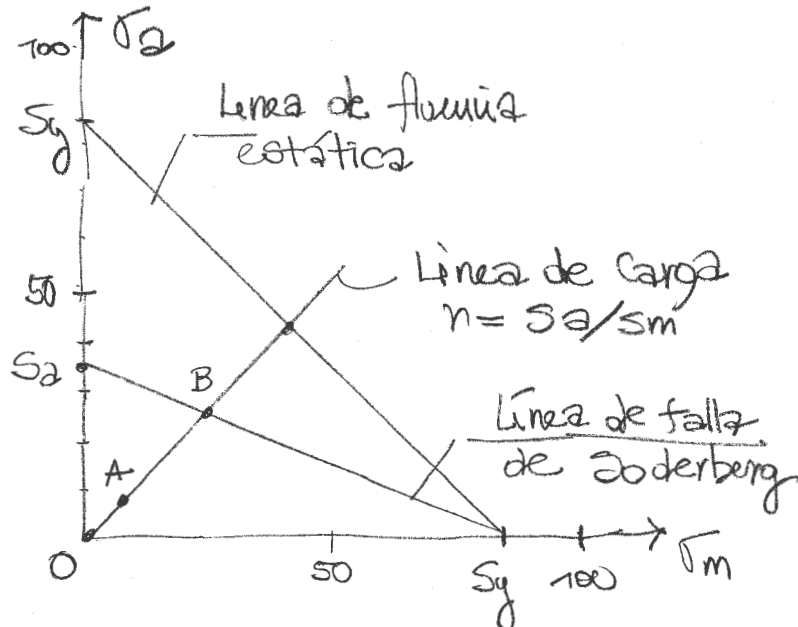 σa
100
Línea de fluencia
estática
Sy
Línea de Carga
n = Sa/Sm
50
Sa
B
Línea de falla
de Soderberg
A
O
50
Sy
100
σm